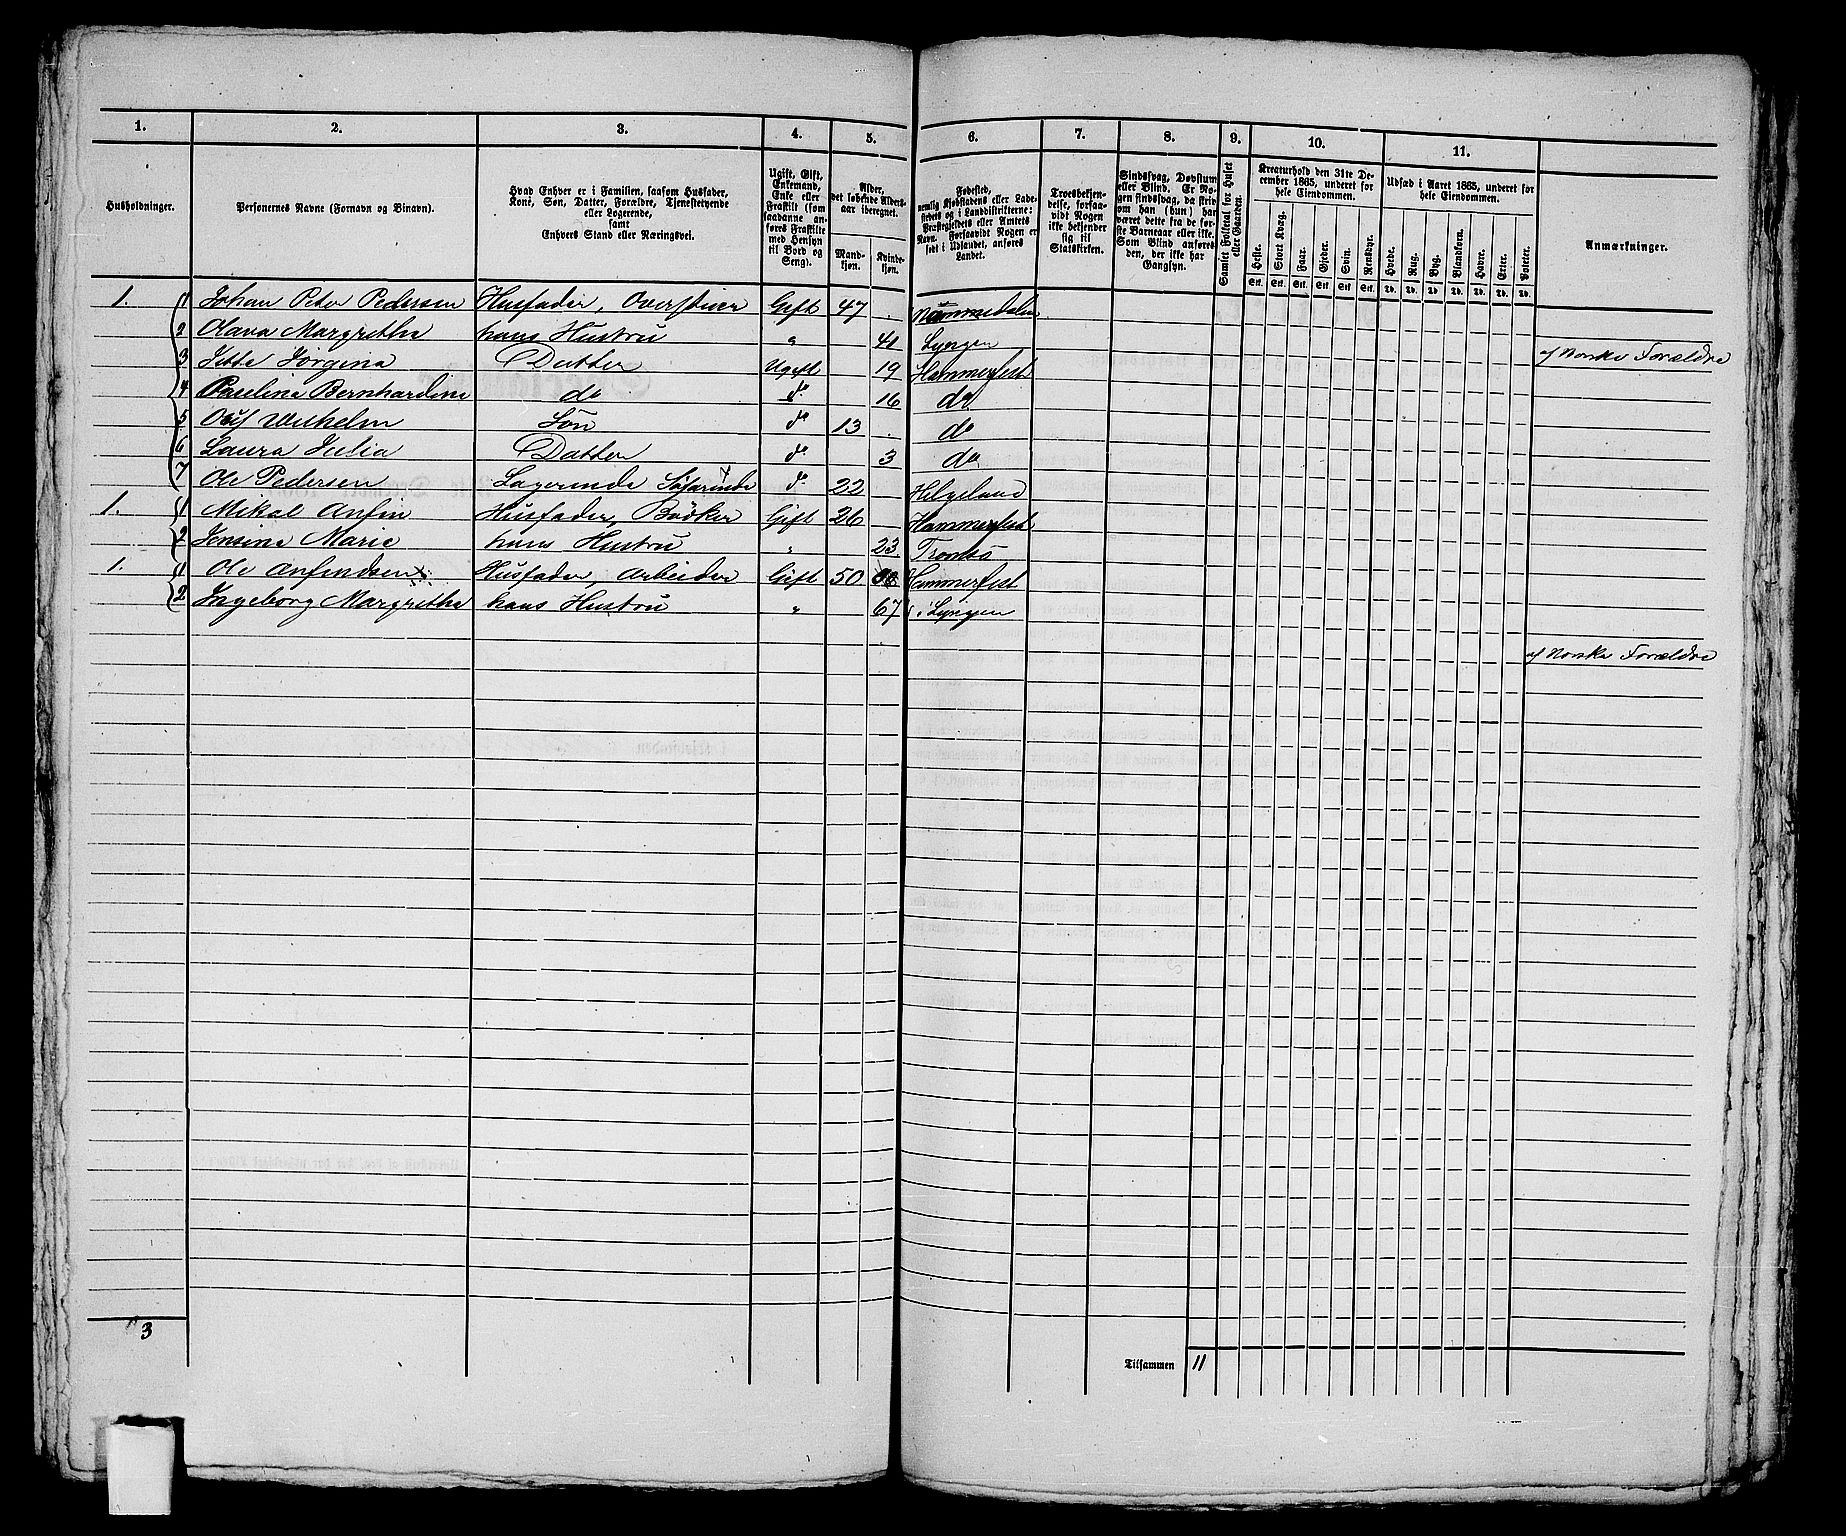 1. 2. 3. 4. 5. 6. 7. 8. 9. 10. 11.
Husholdninger.
Personernes Navne (Fornavn og Binavn).
Hvad Enhver er i Familien, saasom Husfader,
Kone, Søn, Datter, Forældre, Tjenestetyende
eller Logerende,
samt
Enhvers Stand eller Næringsvei.
Ugift, Gift,
Enkemand,
Enke eller
Fraskilt (som
saadanne an-
føres Fraskilte
med Hensyn
til Bord og
Seng).
Alder,
det løbende Alders-
aar iberegnet.
Mand-
kjøn.
Kvinde-
kjøn.
Fødested,
nemlig Kjøbstadens eller Lade-
stedets og i Landdistrikterne:
Præstegjeldets eller Amtets
Navn. Forsaavidt Nogen er
født i Udlandet, anføres
Landet.
Troesbekjen-
delse, forsaa-
vidt Nogen
ikke bekjender
sig til
Statskirken.
Sindssvag, Døvstum
eller Blind. Er No-
gen sindssvag, da skriv
om han (hun) har
været dette fra de før-
ste Barneaar eller ikke.
Som Blind anføres
den, der ikke har
Gangsyn.
Samlet Folketal for Huset
eller Gaarden.
Kreaturhold den 31te De-
cember 1865, underet for
hele Eiendommen.
Heste. Stort Kvæg. Faar. Gjeder. Svin. Rensdyr.
Stk. Stk. Stk. Stk. Stk. Stk.
Udsæd i Aaret 1865, underet for
hele Eiendommen.
Hvede. Rug. Byg. Blandkorn. Havre. Erter. Poteter.
Td. Td. Td. Td. Td. Td. Td.
Anmærkninger.
1. 1 Johan Peter Pedersen Husfader, Gift 47 Nammedalen
2 Olava Margretha hans Hustru " 41 Lyngen af Norske Forældre
3 Jette Jørgina Datter Ugift 19 Hammerfest
4 Bernhardine do do 16 do
5 Oluf Wilhelm Søn do 13 do
6 Laura Julia Datter do 3 do
7 Ole Pedersen do 22 Helgeland
1. 1 Mikal Anfin Husfader, Bødker Gift 26 Hammerfest
2 Jensine Marie hans Hustru " 23 Tromsø
1. 1 Ole Anfindsen Husfader, Arbeider Gift 50 Hammerfest
2 Ingeborg Margretha hans Hustru " 67 Lyngen
af Norske Forældre
3
Tilsammen 11